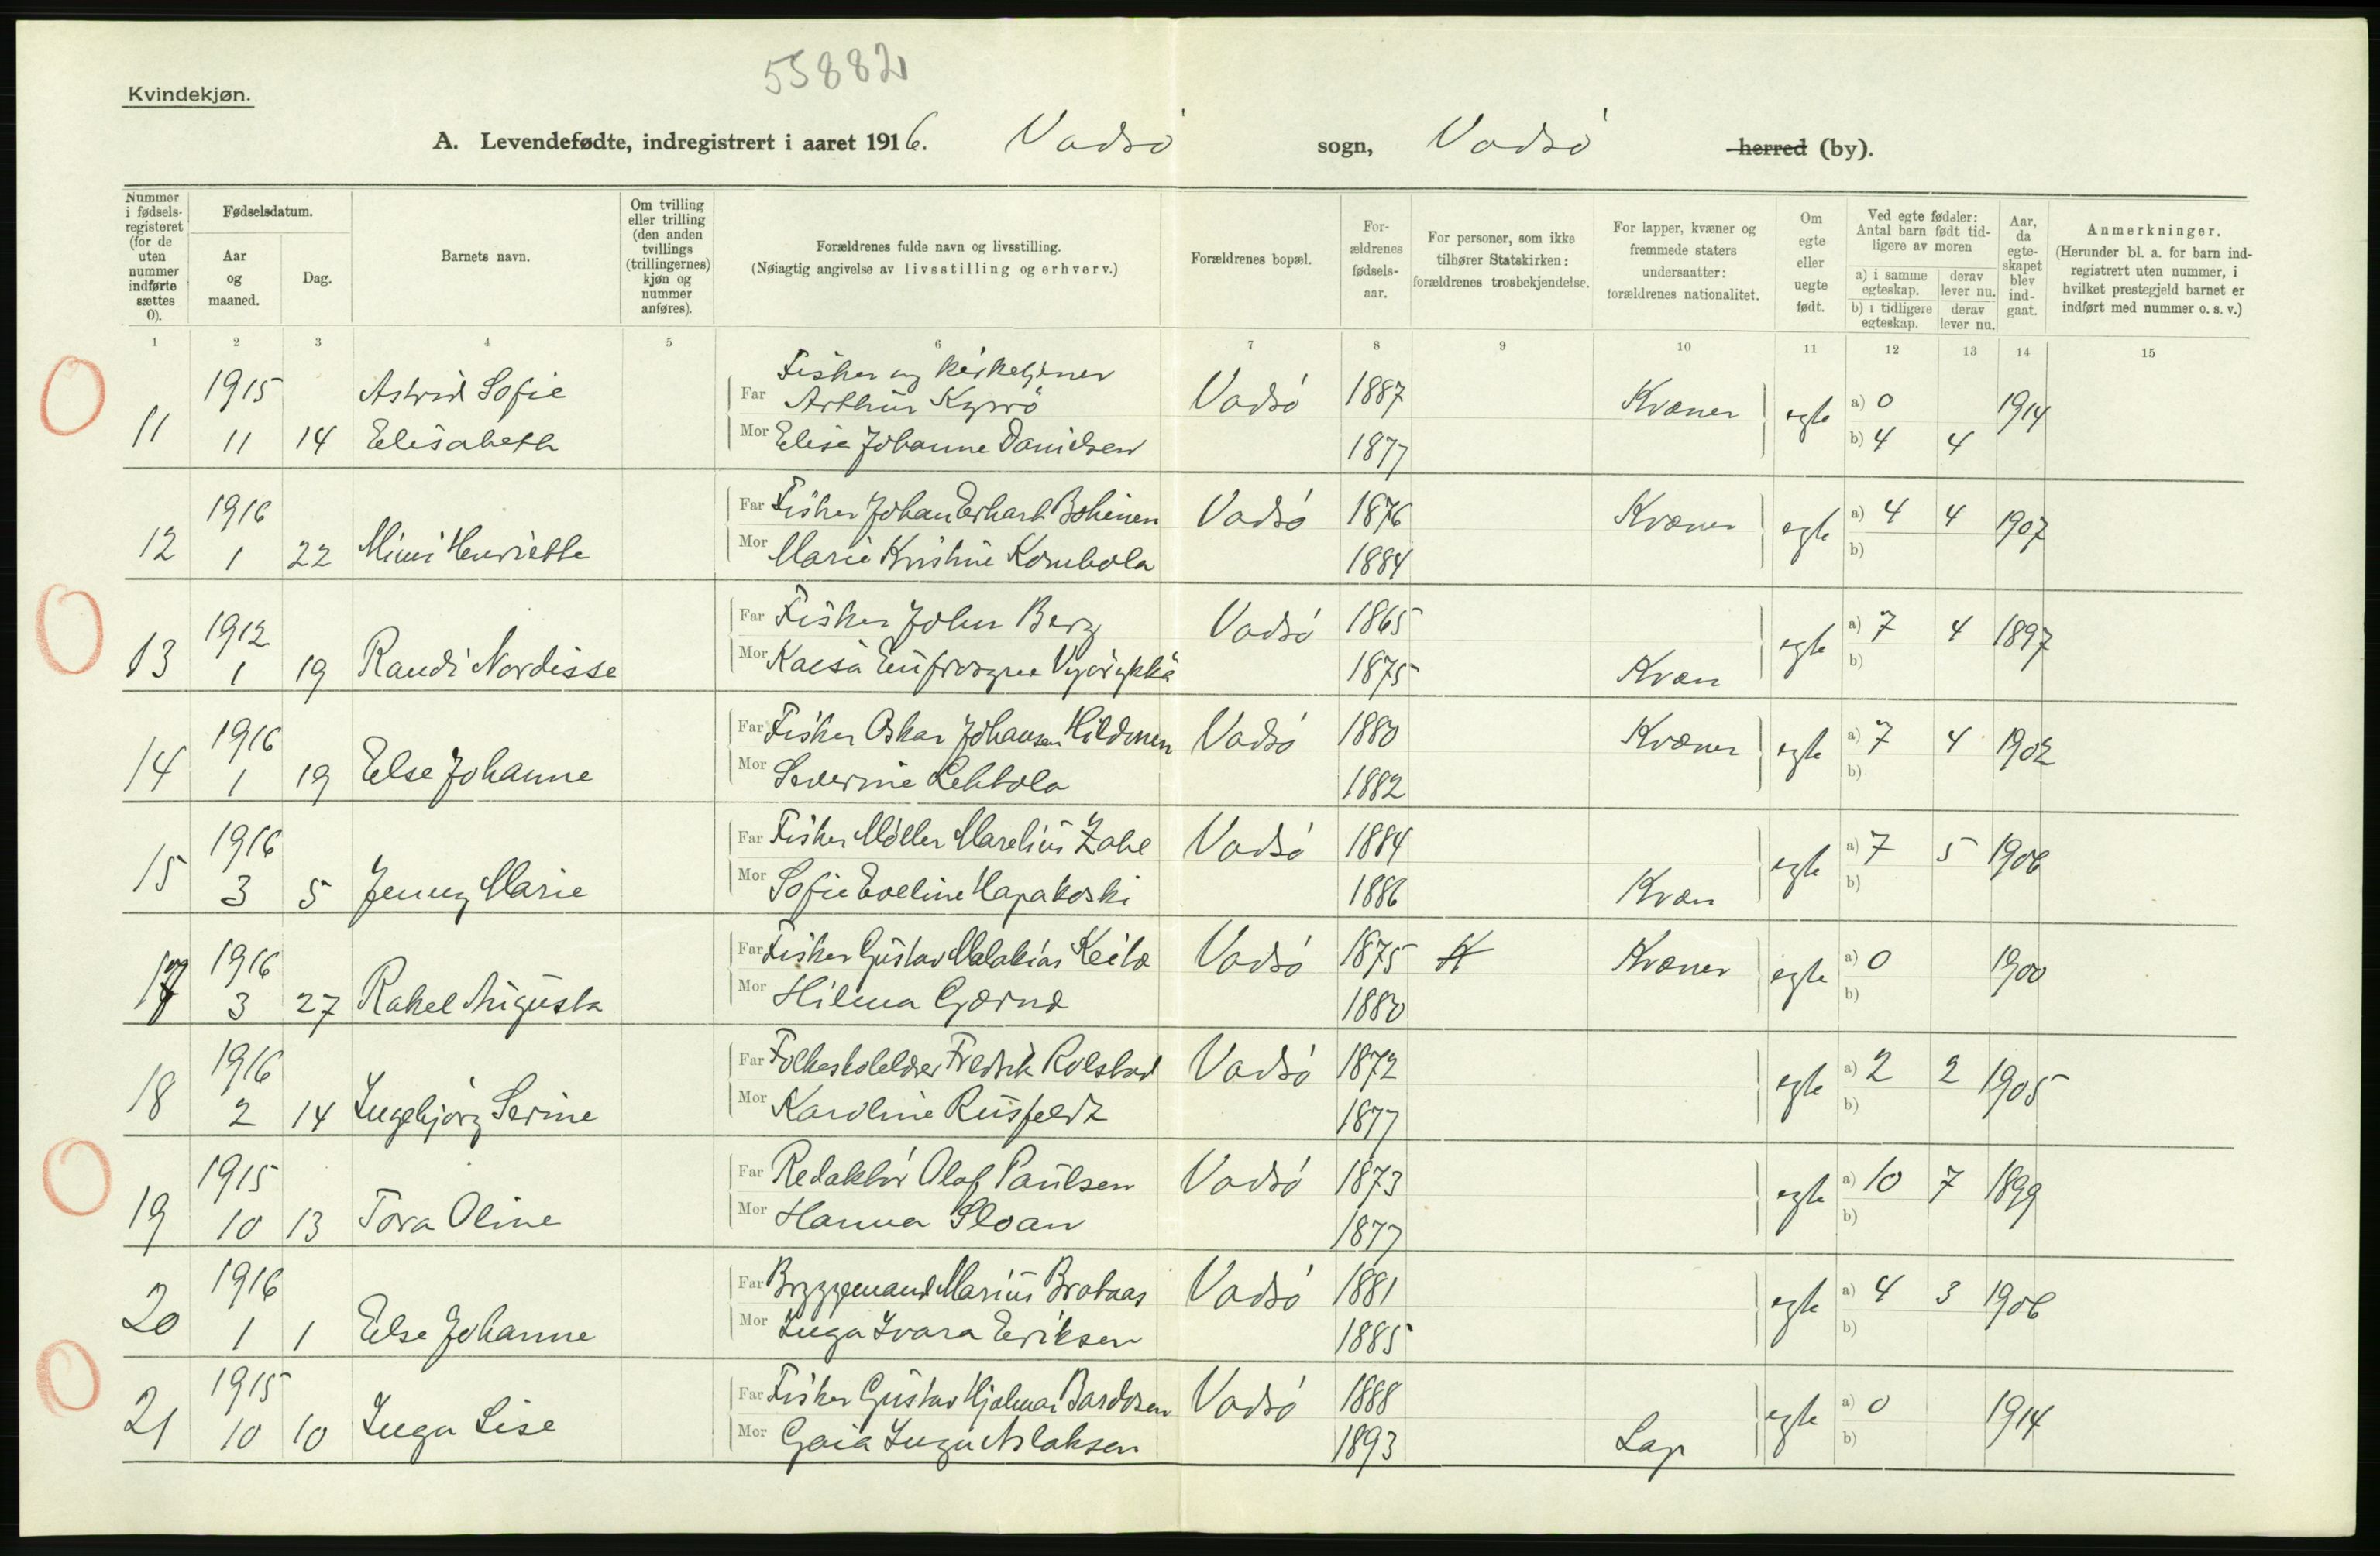 55882
Kvindekjøn.
A. Levendefødte, indregistrert i aaret 1916. Vadsø sogn, Vadsø herred (by).
Nummer i fødsels-registeret (for de uten nummer indførte sættes 0).
Fødselsdatum.
Aar og maaned.
Dag.
Barnets navn.
Om tvilling eller trilling (den anden tvillings (trillingernes) kjøn og nummer anføres).
Forældrenes fulde navn og livsstilling.
(Nøiagtig angivelse av livsstilling og erhverv.)
Forældrenes bopæl.
For-ældrenes fødsels-aar.
For personer, som ikke tilhører Statskirken: forældrenes trosbekjendelse.
For lapper, kvæner og fremmede staters undersaatter: forældrenes nationalitet.
Om egte eller uegte født.
Ved egte fødsler: Antal barn født tid-ligere av moren
a) i samme egteskap. derav lever nu.
b) i tidligere egteskap. derav lever nu.
Aar, da egte-skapet blev ind-gaat.
Anmerkninger.
(Herunder bl. a. for barn ind-registrert uten nummer, i hvilket prestegjeld barnet er indført med nummer o. s. v.)
1 2 3 4 5 6 7 8 9 10 11 12 13 14 15
Fisker og kirketjener
1915 Astrid Sofie Far Arthur Kyrrö Vadsø 1887 Kvæner egte a) 0 1914
11 11 14 Elisabeth Mor Elisa Johanne Danielsen 1877 b) 4 4
1916 Far Fisker Johan Erhart Bohinen Vadsø 1876 Kvæner egte a) 4 4 1907
12 1 22 Mimi Henriette Mor Marie Kristine Kombola 1884 b)
1912 Far Fisker John Berg Vadsø 1865 egte a) 7 4 1897
13 1 19 Randi Nordisse Mor Kaesa Eufrosyne 1875 Kvæn b)
1916 Far Fisker Oskar Johansen Hildonen Vadsø 1880 Kvæner egte a) 7 4 1902
14 1 19 Else Johanne Mor Severine Lehtola 1882 b)
1916 Far Fisker Möller Marelius Zahl Vadsø 1884 egte a) 7 5 1906
15 3 5 Jenny Marie Mor Sofie Eveline Hapakoski 1886 Kvæn b)
1916 Far Fisker Gustav Malakias Keila Vadsø 1875 K Kvæner egte a) 0 1900
17 3 27 Rakel Augusta Mor Hilma 1880 b)
1916 Far Folkeskolelærer Fredrik Rolstad Vadsø 1872 egte a) 2 2 1905
18 2 14 Ingebjørg Serine Mor Karoline Rusfeldt 1877 b)
1915 Far Redaktör Olaf Paulsen Vadsø 1873 egte a) 10 7 1899
19 10 13 Tora Oline Mor Hanna Sloan 1877 b)
1916 Far Bryggemand Marius Brataas Vadsø 1881 egte a) 4 3 1906
20 1 1 Else Johanne Mor Inga Ivara Eriksen 1885 b)
1915 Far Fisker Gustav Hjalmar Bardosen Vadsø 1888 egte a) 0 1914
21 10 10 Inga Lise Mor Gaia Inga Aslaksen 1893 Lap b)